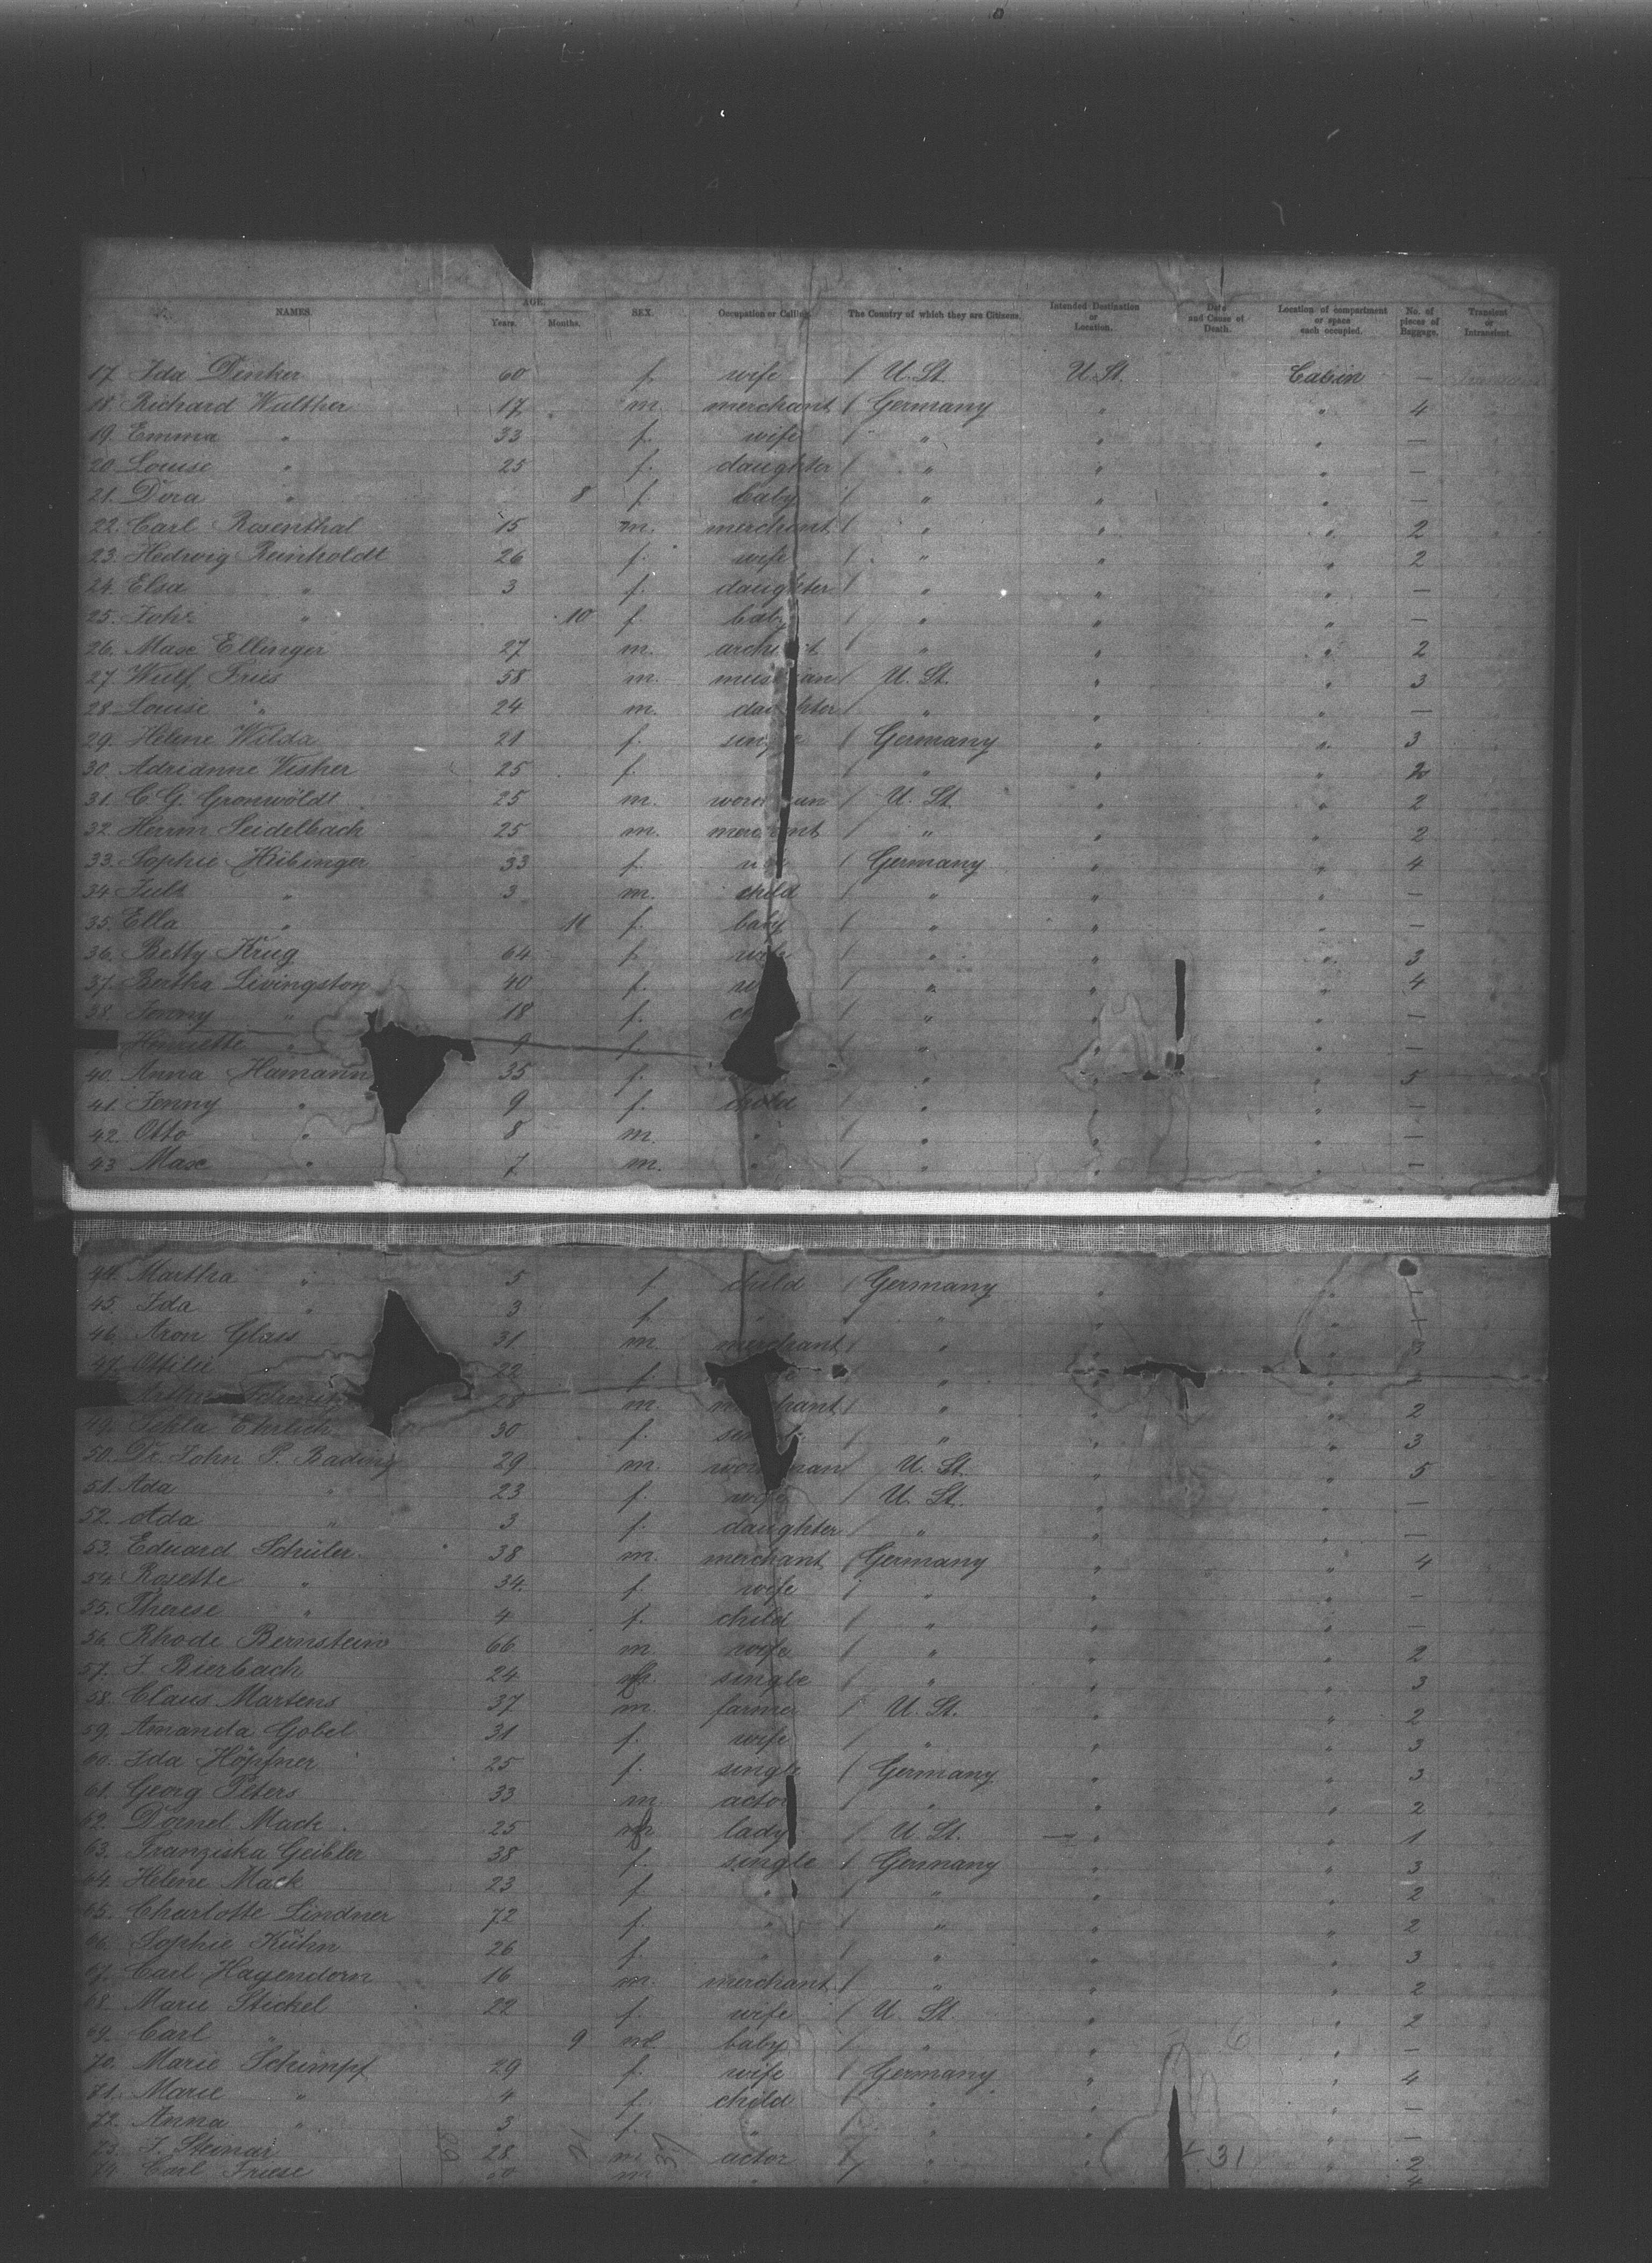 NAMES. AGE. Years. Months. SEX. Occupation or Calling. The Country of which they are Citizens. Intended Destination or Location. Date and Cause of Death. Location of compartment or space each occupied. No. of pieces of Baggage. Transient or Intransient.
17. Ida Denker 60 f. wife / U. St. U. St. Cabin —
18. Richard Walther 17 m. merchant / Germany " " 4
19. Emma " 33 f. wife / " " " —
20. Louise " 25 f. daughter / " " " —
21. Dora " 8 f. baby / " " " —
22. Carl Rosenthal 15 m. merchant / " " " 2
23. Hedwig Reinholdt 26 f. wife / " " " 2
24. Elsa " 3 f. daughter / " " " —
25. " 10 f. baby / " " " —
26. Max Ellinger 27 m. " " " 2
27. Wulf Fries 58 m. / U. St. " " 3
28. Louise " 24 m. / " " " —
29. Helene Wilda 21 f. / Germany " " 3
30. Adrianne Visher 25 f. / " " " 2
31. C. G. Gronwöldt 25 m. / U. St. " " 2
32. Herm. Seidelbach 25 m. / " " " 2
33. Sophie Hübinger 33 f. / Germany " " 4
34. " 3 m. child / " " " —
35. Ella " 11 f. baby / " " " —
36. Betty Krug 64 f. wife / " " " 3
37. Bertha Livingston 40 f. / " " " 4
38. Jenny " 18 f. / " " " —
Henriette " 9 f. / " " " —
40. Anna Hamann 35 f. / " " " 5
41. Jenny " 9 f. child / " " " —
42. Otto " 8 m. " / " " " —
43. Max " 7 m. " / " " " —
44. Martha " 5 f. child / Germany " " —
45. Ida " 3 f. " / " " " —
46. Aron Glass 31 m. merchant / " " " 3
47. Ottilie 22 f. " " " —
Arthur 28 m. / " " " 2
49. Tekla Ehrlich 30 f. / " " " 3
50. Dr. John P. Bading 29 m. U. St. " " 5
51. Ada " 23 f. wife / U. St. " " —
52. Ada " 3 f. daughter / " " " —
53. Eduard Schüler 38 m. merchant / Germany " " 4
54. Rosette " 34. f. wife / " " " —
55. Therese " 4 f. child / " " " —
56. Rhode Bernstein 66 m. wife / " " " 2
57. J. Bierbach 24 single / " " " 3
58. Claus Martens 37 m. farmer / U. St. " " 2
59. Amanda Gobel 31 f. wife / " " " 3
60. Ida Höpfner 25 f. single / Germany " " 3
61. Georg Peters 33 m. actor / " " " 2
62. Mack 25 lady / U. St. — " " 1
63. Franziska Geibler 38 f. single / Germany " " 3
64. Helene Mack 23 f. " / " " " 2
65. Charlotte Lindner 72 f. " / " " " 2
66. Sophie Kühn 26 f. " / " " " 3
67. Carl Hagendorn 16 m. merchant / " " " 2
68. Marie Stickel 22 f. wife / U. St. " " 2
69. Carl " 9 baby / " " " —
70. Marie Schimpf 29 f. wife / Germany " " 4
71. Marie " 4 f. child / " " " —
72. Anna " 3 f. " / " " " —
73. J. Steinar 28 m. actor / " " " 2
74. Carl Friese m. " / " " 4
31